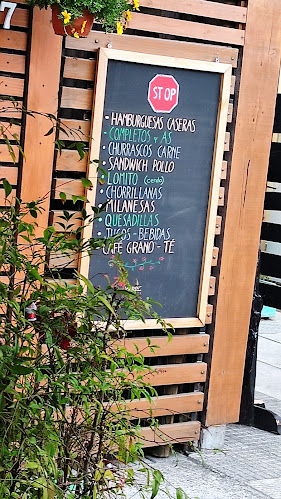 7
STOP
• HAMBURGUESAS CASERAS
• COMPLETOS y AS
• CHURRASCOS CARNE
• SANDWICH POLLO
• LOMITO (cerdo)
• CHORRILLANAS
• MILANESAS
• QUESADILLAS
• JUGOS - BEBIDAS
CAFÉ GRANO - TÉ